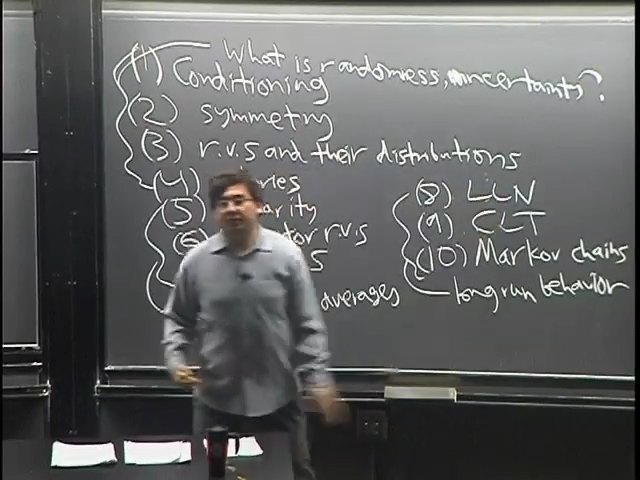 What is randomness, uncertainty?
(1) Conditioning
(2) symmetry
(3) r.v.s and their distributions
(4)
(5)
(6) r.v.s
averages
(8) LLN
(9) CLT
(10) Markov chains
long run behavior